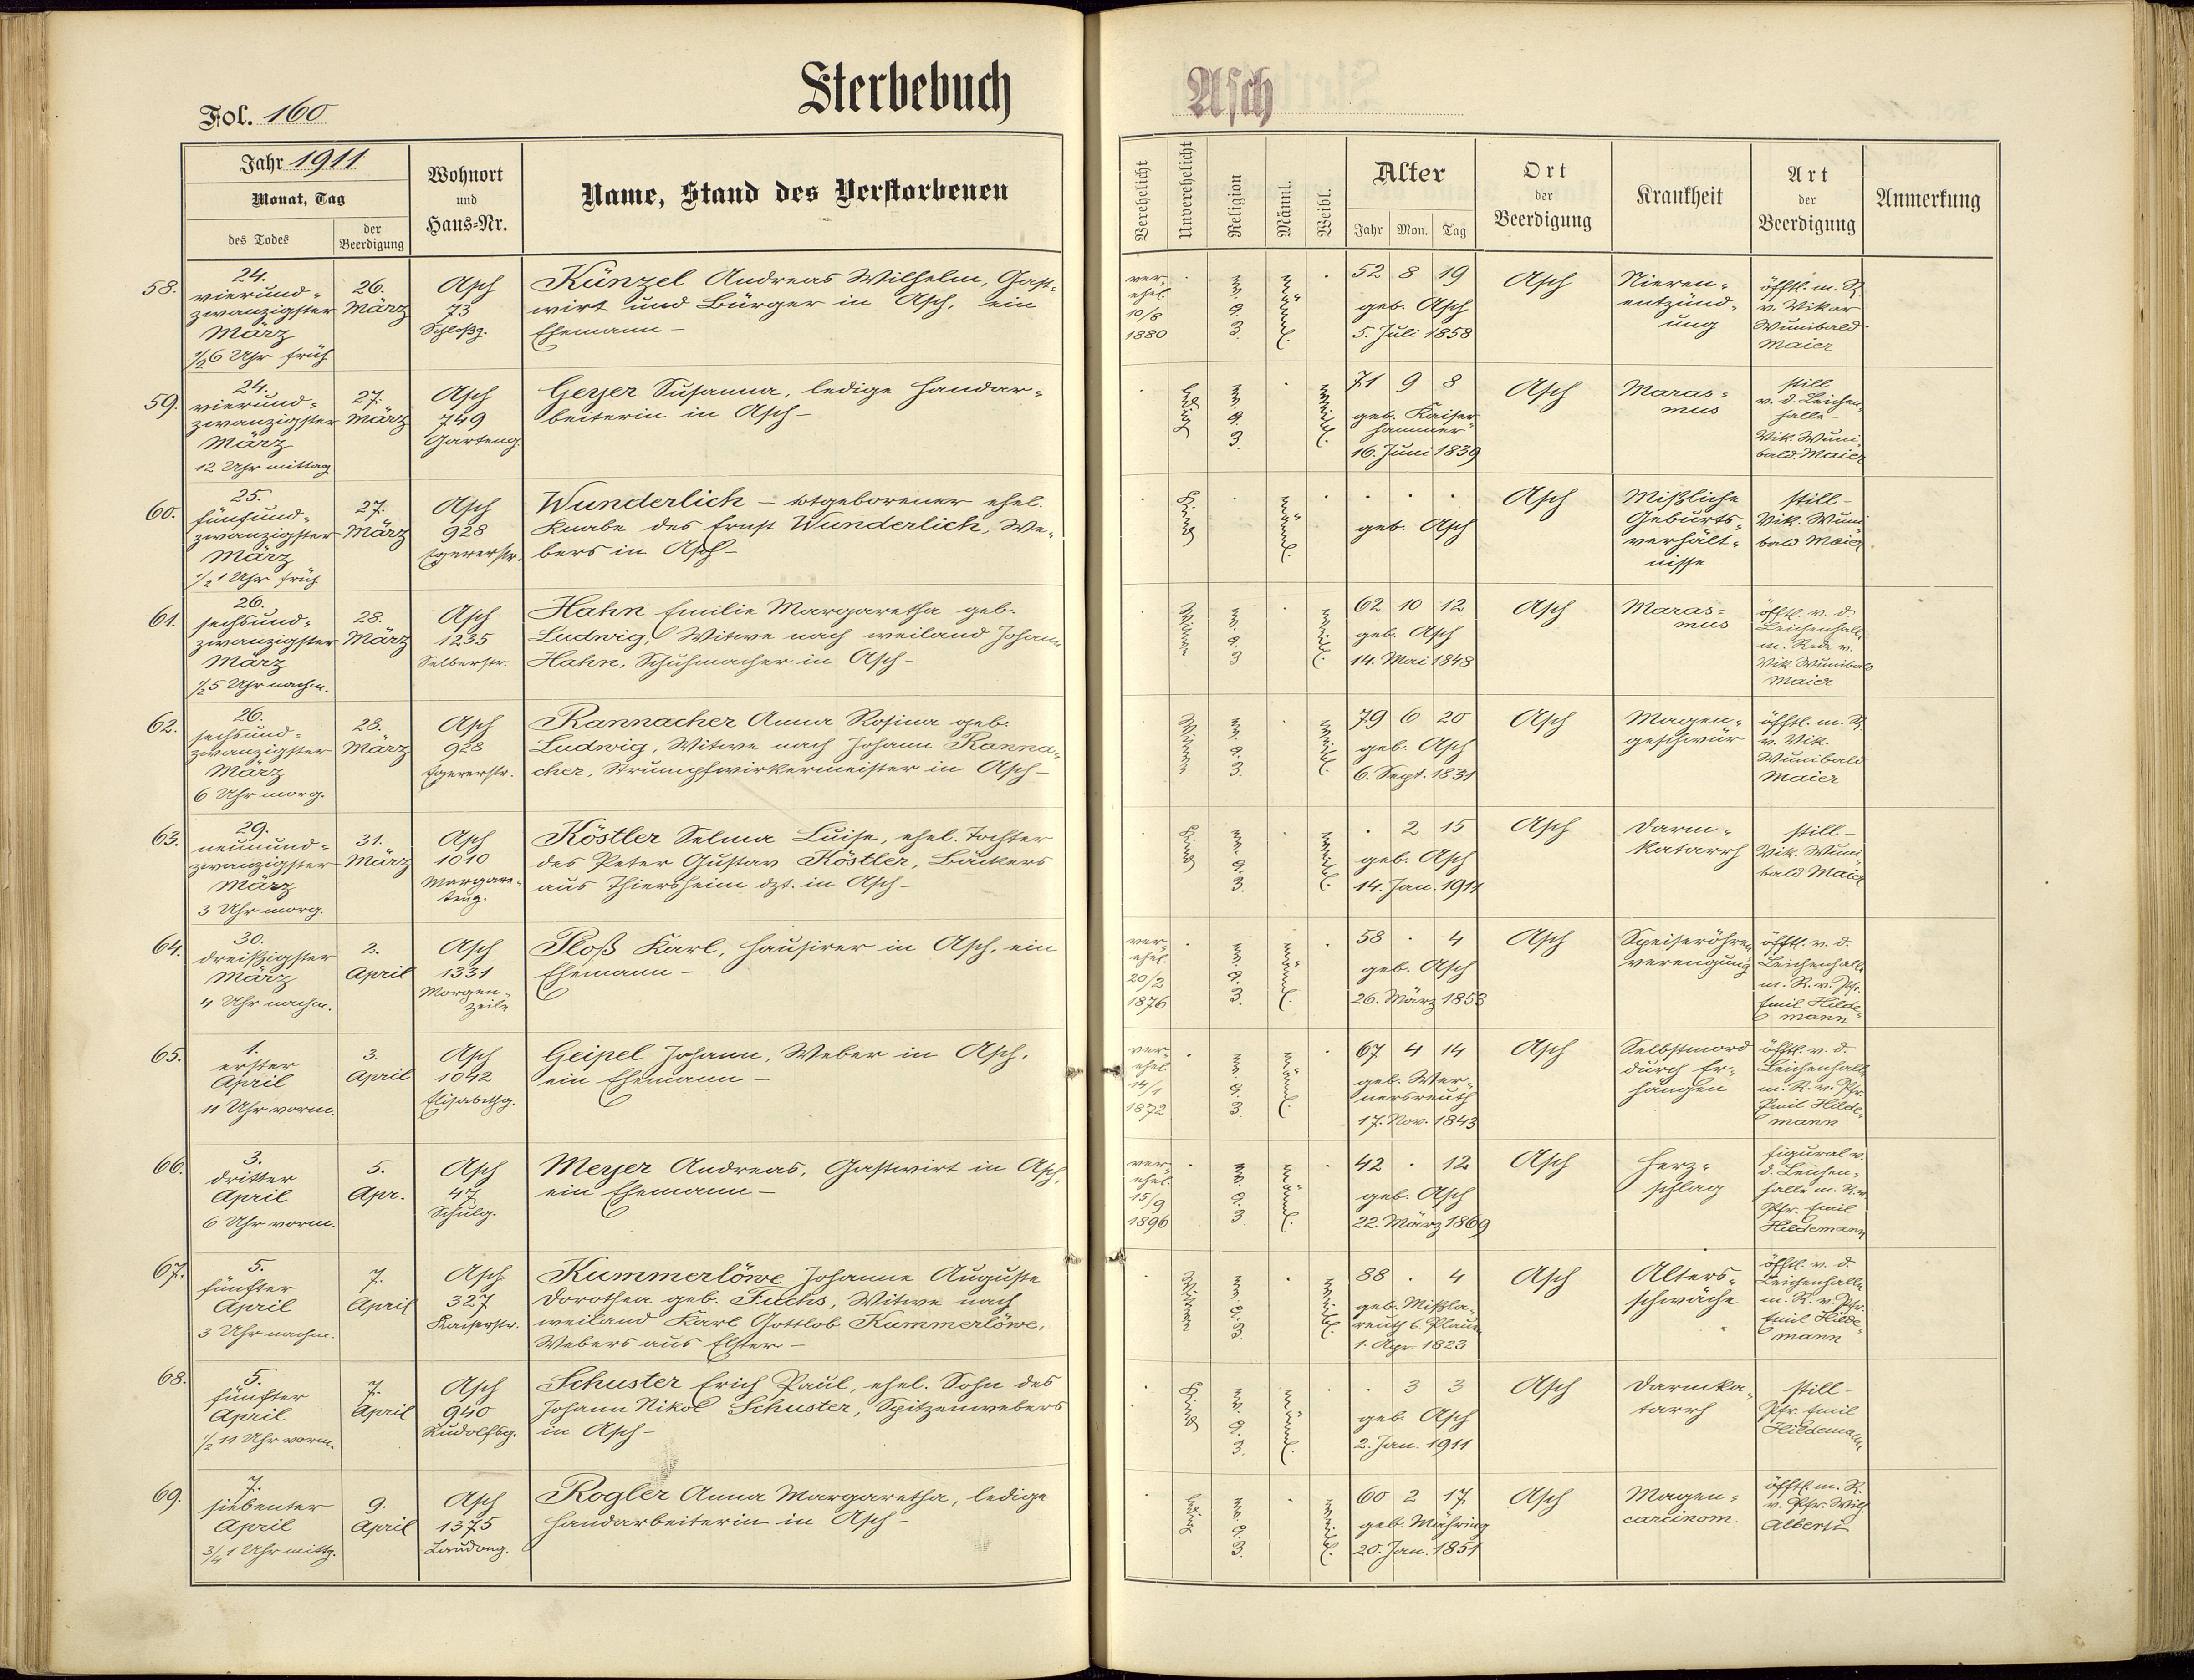 Sterbebuch
Asch
Fol. 160
Jahr 1911
Monat, Tag
des Todes
der Beerdigung
Wohnort
und
Haus-Nr.
Name, Stand des Verstorbenen
Verehelicht
Unverehelicht
Religion
Männl.
Weibl.
Alter
Jahr Mon. Tag
Ort
der
Beerdigung
Krankheit
Art
der
Beerdigung
Anmerkung
58.
24.
vierund-
zwanzigster
März
1/2 6 Uhr früh
26.
März
Asch
73
Schloßg.
Künzel Andreas Wilhelm, Gast-
wirt und Bürger in Asch, ein
Ehemann –
ver-
ehel.
10/8
1880
männl.
52 8 19
geb. Asch
5. Juli 1858
Asch
Nieren-
entzünd-
ung
öfftl. m. R.
v. Vikar
Wunibald
Maier
59.
24.
vierund-
zwanzigster
März
12 Uhr mittag
27.
März
Asch
749
Garteng.
Geyer Susanna, ledige Handar-
beiterin in Asch –
ledig
weibl.
71 9 8
geb. Kaiser-
hammer
16. Juni 1839
Asch
Maras-
mus
still
v. d. Leichen-
halle –
Vik. Wuni-
bald Maier
60.
25.
fünfund-
zwanzigster
März
1/2 1 Uhr früh
27.
März
Asch
928
Egererstr.
Wunderlich – totgeborener ehel.
Knabe des Ernst Wunderlich, We-
bers in Asch –
Kind
männl.
geb. Asch
Asch
Mißliche
Geburts-
verhält-
nisse
still –
Vik. Wuni-
bald Maier
61.
26.
sechsund-
zwanzigster
März
1/2 5 Uhr nachm.
28.
März
Asch
1235
Selberstr.
Hahn Emilie Margaretha geb.
Ludwig, Witwe nach weiland Johann
Hahn, Schuhmacher in Asch –
Witwe
weibl.
62 10 12
geb. Asch
14. Mai 1848
Asch
Maras-
mus
öfftl. v. d.
Leichenhall.
m. Rede v.
Vik. Wunibald
Maier
62.
26.
sechsund-
zwanzigster
März
6 Uhr morg.
28.
März
Asch
928
Egererstr.
Rannacher Anna Rosina geb.
Ludwig, Witwe nach Johann Ranna-
cher, Strumpfwirkermeister in Asch –
Witwe
weibl.
79 6 20
geb. Asch
6. Sept. 1831
Asch
Magen-
geschwür
öfftl. m. R.
v. Vik.
Wunibald
Maier
63.
29.
neunund-
zwanzigster
März
3 Uhr morg.
31.
März
Asch
1010
Margare-
teng.
Köstler Selma Luise, ehel. Tochter
des Peter Gustav Köstler, Bäckers
aus Thiersheim dzt. in Asch –
Kind
weibl.
2 15
geb. Asch
14. Jan. 1911
Asch
Darm-
katarrh
still –
Vik. Wuni-
bald Maier
64.
30.
dreißigster
März
4 Uhr nachm.
2.
April
Asch
1331
Morgen-
zeile
Ploß Karl, Hausirer in Asch, ein
Ehemann –
ver-
ehel.
20/2
1876
männl.
58 . 4
geb. Asch
26. März 1853
Asch
Speiseröhren
verengung
öfftl. v. d.
Leichenhalle
m. R. v. Pfr.
Emil Hilde-
mann
65.
1.
erster
April
11 Uhr vorm.
3.
April
Asch
1042
Elisabethg.
Geipel Johann, Weber in Asch,
ein Ehemann –
ver-
ehel.
14/1
1872
männl.
67 4 14
geb. Wer-
nersreuth
17. Nov. 1843
Asch
Selbstmord
durch Er-
hängen
öfftl. v. d.
Leichenhalle
m. R. v. Pfr.
Emil Hilde-
mann
66.
3.
dritter
April
6 Uhr vorm.
5.
Apr.
Asch
47
Schulg.
Meyer Andreas, Gastwirt in Asch,
ein Ehemann –
ver-
ehel.
15/9
1896
männl.
42 . 12
geb. Asch
22. März 1869
Asch
Herz-
schlag
figural v.
d. Leichen-
halle m. R. v.
Pfr. Emil
Hildemann
67.
5.
fünfter
April
3 Uhr nachm.
7.
April
Asch
327
Kaiserstr.
Kummerlöwe Johanne Auguste
Dorothea geb. Fuchs, Witwe nach
weiland Karl Gottlob Kummerlöwe,
Webers aus Elster –
Witwe
weibl.
88 . 4
geb. Mißla-
reuth b. Plauen
1. Apr. 1823
Asch
Alters-
schwäche
öfftl. v. d.
Leichenhalle
m. R. v. Pfr.
Emil Hilde-
mann
68.
5.
fünfter
April
1/2 11 Uhr vorm.
7.
April
Asch
940
Rudolfsg.
Schuster Erich Paul, ehel. Sohn des
Johann Nikol Schuster, Spitzenwebers
in Asch –
Kind
männl.
3 3
geb. Asch
2. Jan. 1911
Asch
Darmka-
tarrh
still –
Pfr. Emil
Hildemann
69.
7.
siebenter
April
3/4 1 Uhr mittg.
9.
April
Asch
1375
Laudong.
Rogler Anna Margaretha, ledige
Handarbeiterin in Asch –
ledig
weibl.
60 2 17
geb. Mähring
20. Jan. 1851
Asch
Magen-
carcinom.
öfftl. m. R.
v. Pfr. Wilh.
Alberti